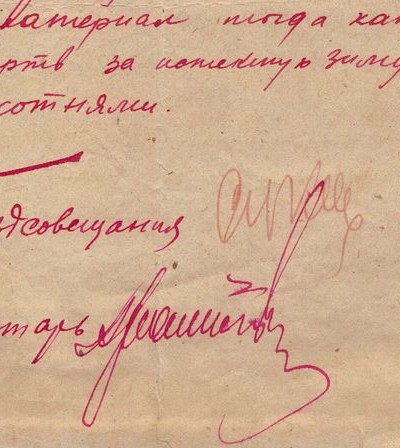 материал тогда как
ертв за истекшую зиму
сотнями.
едсовещания
тарь